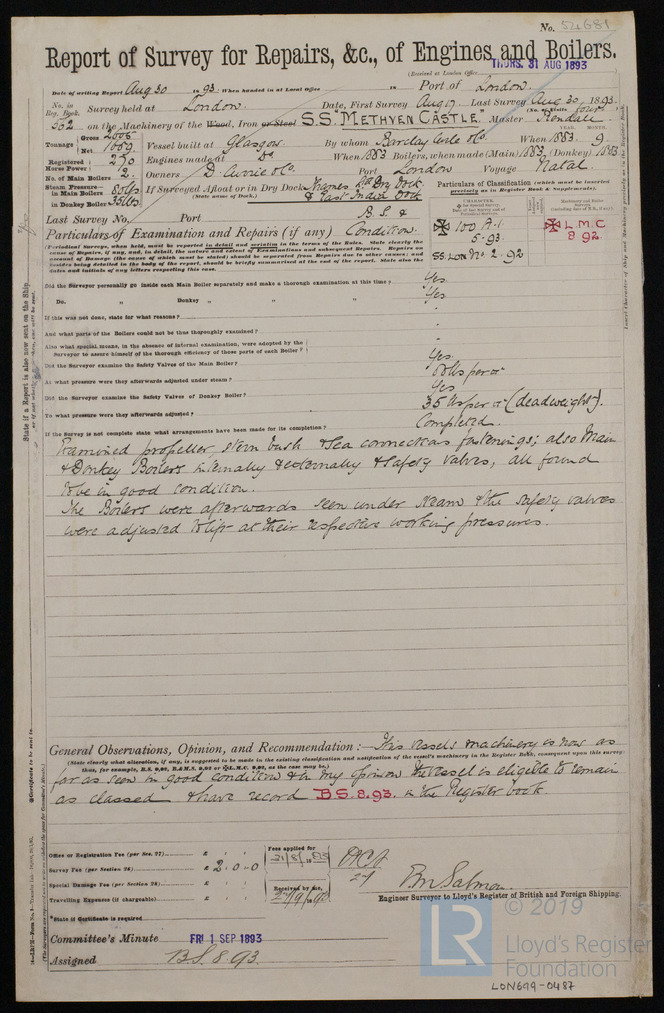 No. 54681
Report of Survey for Repairs, &c., of Engines and Boilers.
THURS. 31 AUG 1893
(Received at London Office
Date of writing Report Aug 30 1893. When handed in at Local Office 18 Port of London.
No. in Reg. Book. Survey held at London. Date, First Survey Aug 17. Last Survey Aug 30, 1893.
(No. of Visits four)
362 on the Machinery of the Wood, Iron or Steel S.S. "METHVEN CASTLE. Master Rendall.
Tonnage Gross 2606 Net 1689 Vessel built at Glasgow. By whom Barclay Curle & Co. When 1883. 9
YEAR. MONTH.
Registered Horse Power 250 Engines made at Do When 1883 Boilers, when made (Main) 1883 (Donkey) 1883
No. of Main Boilers 2. Owners D. Currie & Co. Port London Voyage Natal
Steam Pressure in Main Boilers 80 lbs If Surveyed Afloat or in Dry Dock Thames Dry Dock
in Donkey Boiler 35 lbs (State name of Dock.) & East India Dock
Particulars of Classification (which must be inserted precisely as in Register Book & Supplements).
CHARACTER.
Machinery and Boiler Surveys
100 A.1
5.93.
SS. LON No 2.92
L.M.C
8 92
Last Survey No. Port B.S. &
Particulars of Examination and Repairs (if any) Condition.
(Periodical Surveys, when held, must be reported in detail and seriatim in the terms of the Rules. State clearly the cause of Repairs, if any, and, in detail, the nature and extent of Examinations and subsequent Repairs. Repairs on account of Damage (the cause of which must be stated) should be separated from Repairs due to other causes; and besides being detailed in the body of the report, should be briefly summarised at the end of the report. State also the dates and initials of any letters respecting this case.
Did the Surveyor personally go inside each Main Boiler separately and make a thorough examination at this time? Yes.
Do. " Donkey " " " Yes.
If this was not done, state for what reasons? -
And what parts of the Boilers could not be thus thoroughly examined? -
Also what special means, in the absence of internal examination, were adopted by the Surveyor to assure himself of the thorough efficiency of those parts of each Boiler? -
Did the Surveyor examine the Safety Valves of the Main Boiler? Yes.
At what pressure were they afterwards adjusted under steam? 80 lbs per □"
Did the Surveyor examine the Safety Valves of Donkey Boiler? Yes
To what pressure were they afterwards adjusted? 35 lbs per □" (deadweight).
If the Survey is not complete state what arrangements have been made for its completion? Completed.
Examined propeller, stern bush & sea connections fastenings; also Main
& Donkey Boilers internally & externally & safety valves, all found
to be in good condition.
The Boilers were afterwards seen under steam & the safety valves
were adjusted to lift at their respective working pressures.
General Observations, Opinion, and Recommendation:— This vessels machinery is now as
(State clearly what alteration, if any, is suggested to be made in the existing classification and notification of the vessel's machinery in the Register Book, consequent upon this survey; thus, for example, B.S. 9,92, B.&M.S. 9,92 or L.M.C. 9,92, as the case may be.)
far as seen in good condition & in my opinion the vessel is eligible to remain
as classed & have record B.S. 8.93. in the Register book.
Office or Registration Fee (per Sec. 27) £ : :
Survey Fee (per Section 28) £ 2 : 0 : 0
Special Damage Fee (per Section 28) £ : :
Travelling Expenses (if chargeable) £ : :
Fees applied for
31/8/1893
Received by me,
*State if Certificate is required
Engineer Surveyor to Lloyd's Register of British and Foreign Shipping.
Committee's Minute FRI 1 SEP 1893
Assigned B.S. 8.93.
State if a Report is also now sent on the Ship.
© 2019
LR
Lloyd's Register
Foundation
LON699-0487